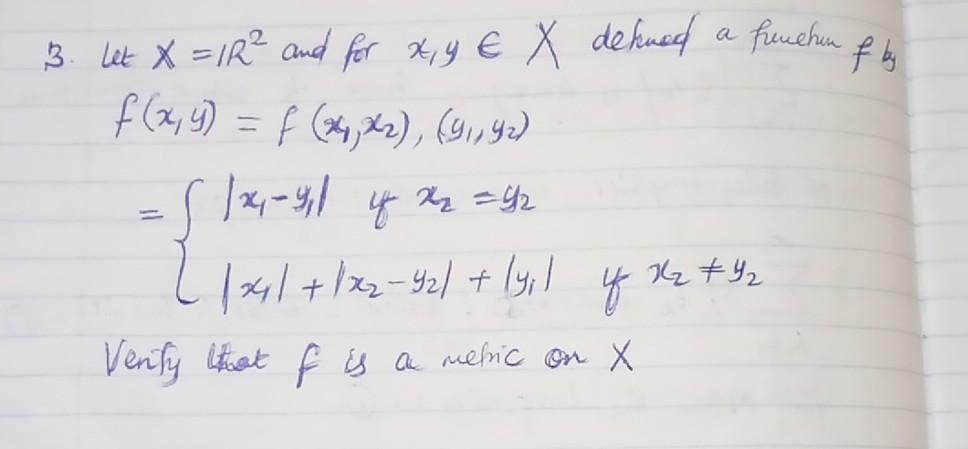 3. Let X = IR² and for x, y ∈ X defined a function f by
f(x, y) = f (x₁, x₂), (y₁, y₂)
= { |x₁ - y₁| if x₂ = y₂
|x₁| + |x₂ - y₂| + |y₁| if x₂ ≠ y₂
Verify that f is a metric on X